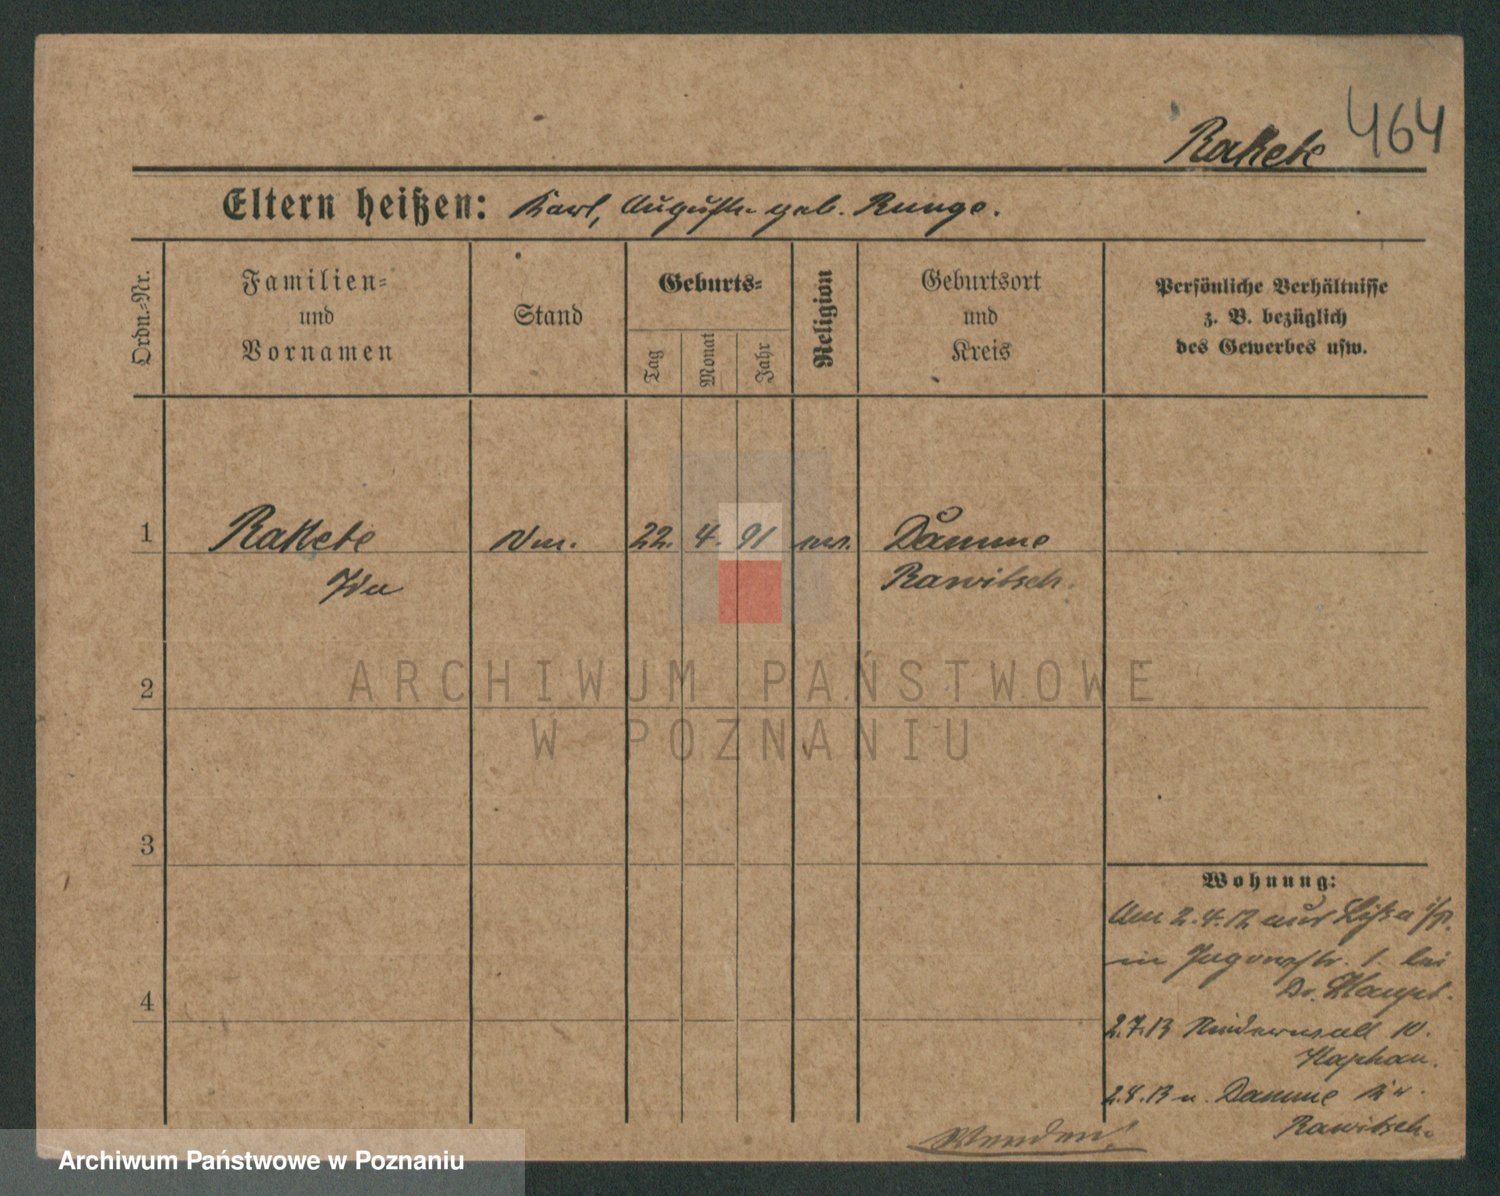 464
Rakete
Eltern heißen: Karl, Auguste geb. Runge.
Ordn.-Nr.
Familien-
und
Vornamen
Stand
Geburts-
Tag
Monat
Jahr
Religion
Geburtsort
und
Kreis
Persönliche Verhältnisse
z. B. bezüglich
des Gewerbes usw.
1
Rakete
Ida
22. 4. 91
Damme
Rawitsch.
2
3
4
Wohnung:
Am 2.4.12 aus Lissa
in Jagowstr. 1 bei
Dr. Haupt.
2.7.13 10.
2.8.13 n. Damme Kr.
Rawitsch.
Wenden!
ARCHIWUM PAŃSTWOWE
W POZNANIU
Archiwum Państwowe w Poznaniu